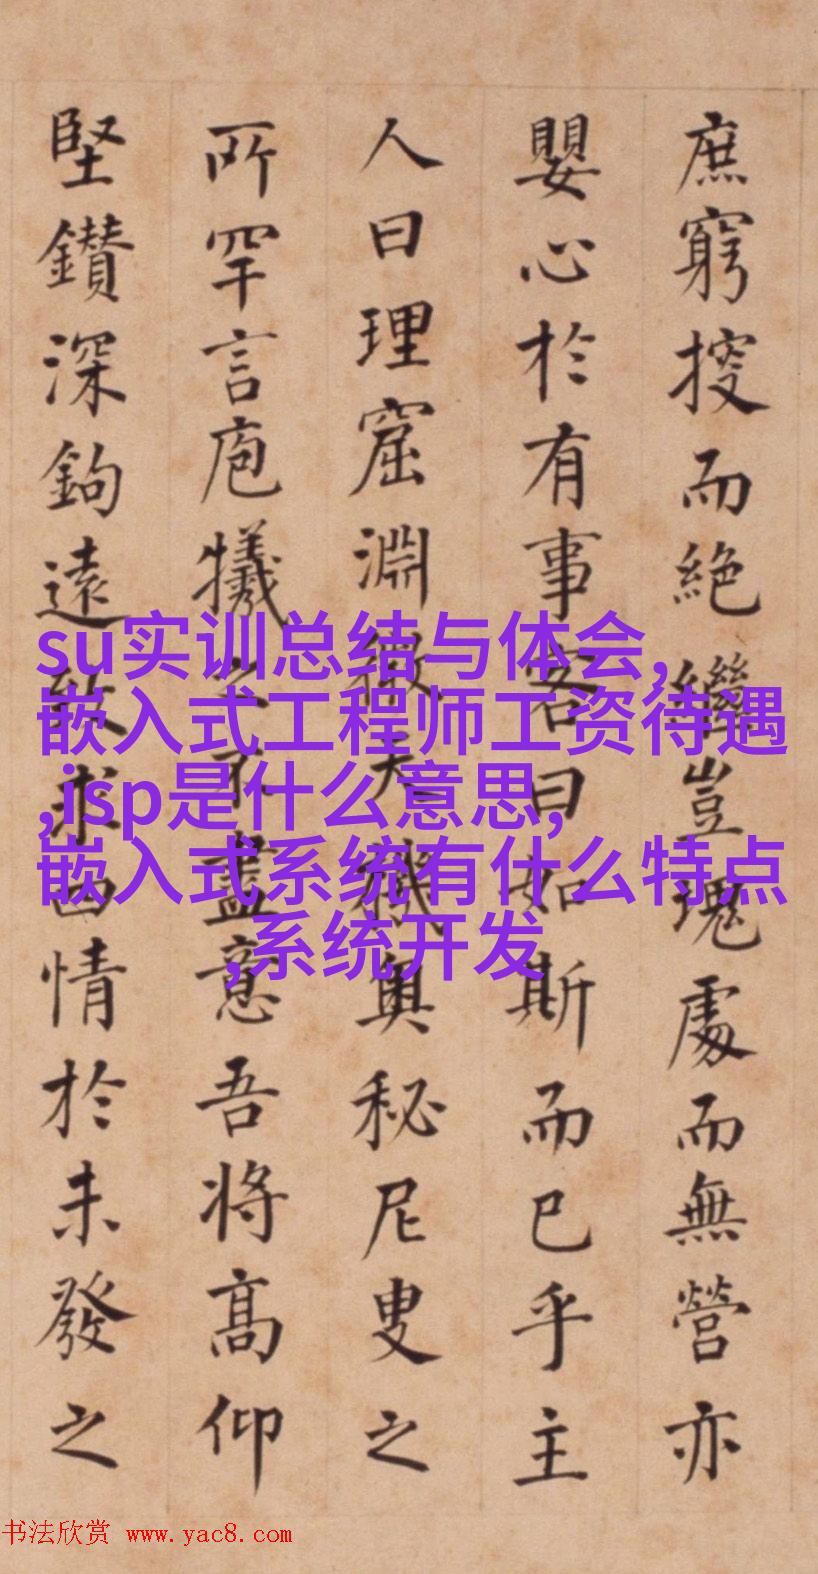 庶窮搜而絶繼豈塊處而無營亦
嬰心於有事客曰如斯而已乎主
人曰理窟淵微天機奧秘尼叟之
所罕言庖犧之不盡意吾將高仰
堅鑽深鉤遠致求情於未發之
su实训总结与体会,
嵌入式工程师工资待遇
,isp是什么意思,
嵌入式系统有什么特点
,系统开发
书法欣赏 www.yac8.com